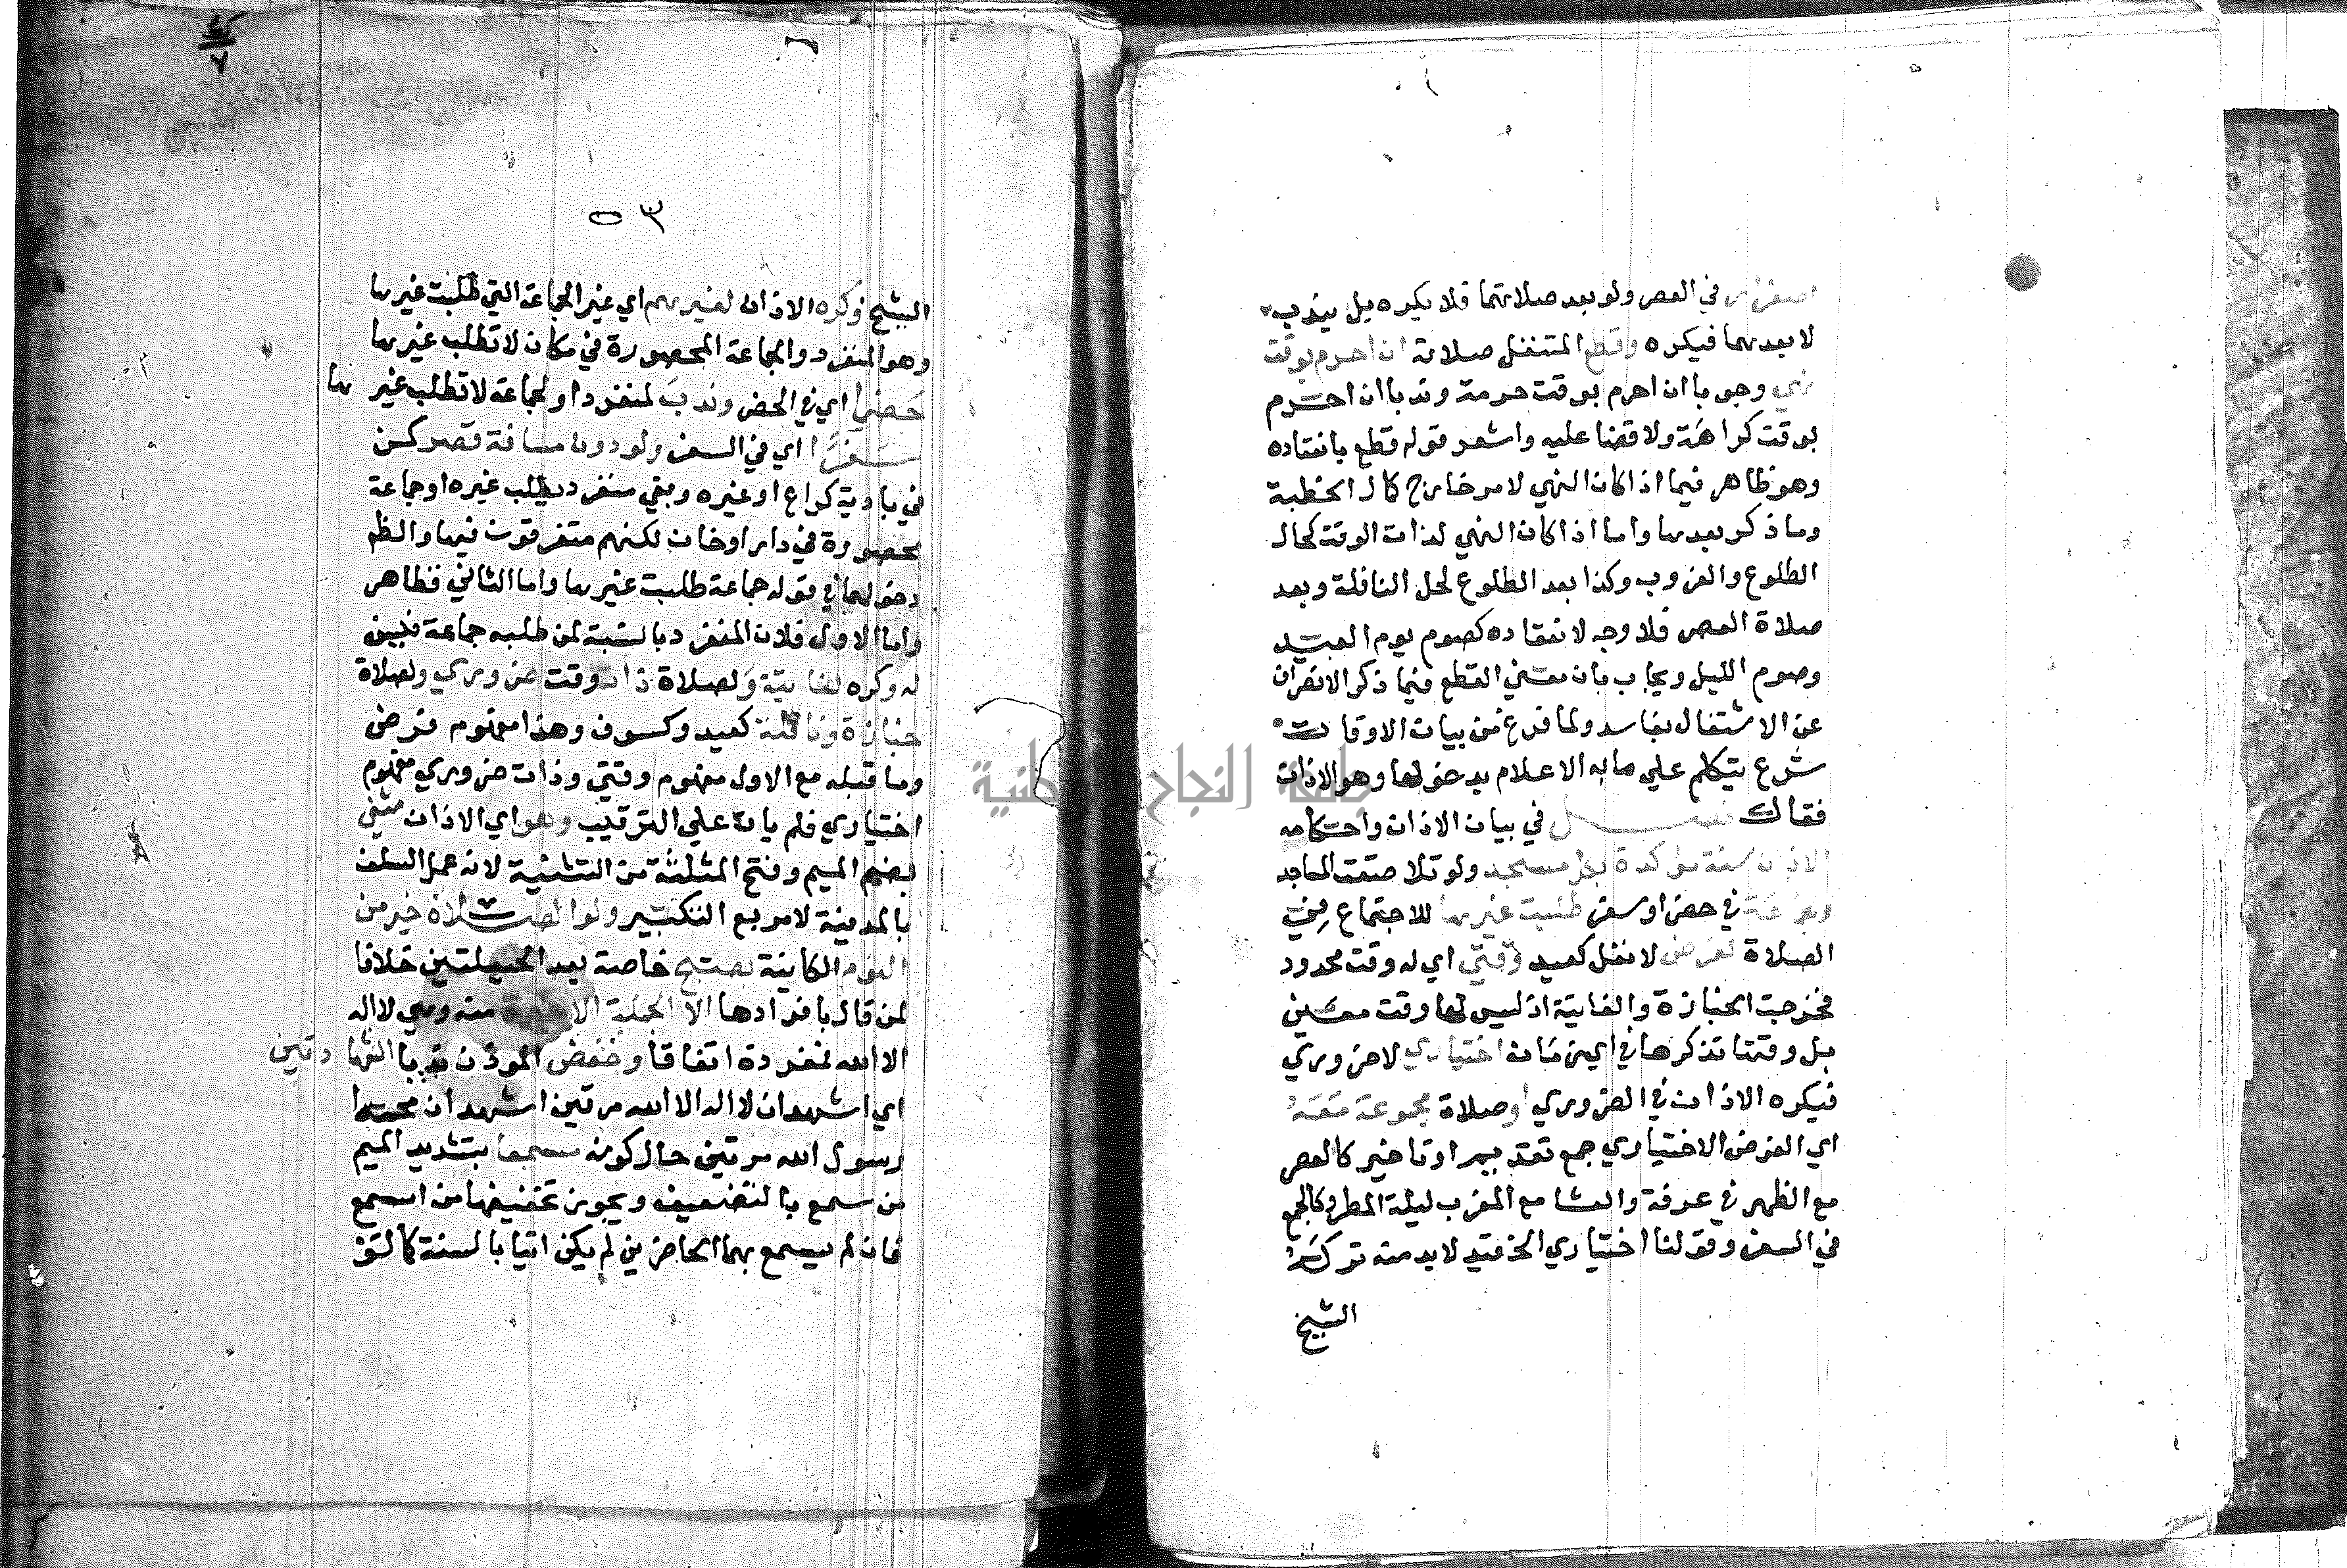 اصفرار في العصر ولو بعد صلاتهما فلا يكره بل يندب
لا بعدهما فيكره وقطع المتنفل صلاته ان احرم بوقت
نهي وجوبا ان احرم بوقت حرمة وندبا ان احرم
بوقت كراهة ولا قضا عليه واشعر قوله قطع بانعقاده
وهو ظاهر فيما اذا كان النهي لامر خارج كحال الخطبة
وما ذكر بعدها واما اذا كان النهي لذات الوقت كحال
الطلوع والغروب وكذا بعد الطلوع لحل النافلة وبعد
صلاة العصر فلا وجه لانعقاده كصوم يوم العيد
وصوم الليل ويجاب بان معني القطع فيما ذكر الانصراف
عن الاشتغال بفاسد ولما فرع من بيان الاوقات
شرع يتكلم علي ما به الاعلام بدخولها وهو الاذان
فقال فصل في بيان الاذان واحكامه
الاذان سنة موكدة بكل مسجد ولو تلاصقت المساجد
وجماعة في حضر او سفر طلبت غيرها للاجتماع في
الصلاة لفرض لا نفل كعيد وقتي اي له وقت محدود
فخرجت الجنازة والفايتة اذ ليس لها وقت معين
بل وقتها تذكرها في اي زمان اختياري لا ضروري
فيكره الاذان في الضروري او صلاة مجموعة معه
اي الفرض الاختياري جمع تقديم او تاخير كالعصر
مع الظهر في عرفة والعشا مع المغرب ليلة المطر وكالجمع
في السفر وقولنا اختياري الخ قيد لا بد منه تركه
الشيخ
٥٣
الشيخ وكره الاذان لغيرهم اي غير الجماعة التي طلبت غيرها
وهو المنفرد والجماعة المحصورة في مكان لا تطلب غيرها
حضرا اي في الحضر وندب لمنفرد او لجماعة لا تطلب غيرها
سفرا اي في السفر ولو دون مسافة قصر كمن
في بادية كراع او غيره وبقي منفرد يطلب غيره او جماعة
محصورة في دار او خان لكنهم متفرقون فيها والظم
دخولهما في قوله جماعة طلبت غيرها واما الثاني فظاهر
واما الاول فلان المنفرد بالنسبة لمن طلبه جماعة فيسن
له وكره لفايتة ولصلاة ذات وقت ضروري ولصلاة
جنازة ونافلة كعيد وكسوف وهذا مفهوم فرض
وما قبله مع الاول مفهوم وقتي وذات ضروري مفهوم
اختياري فلم يات علي الترتيب وهو اي الاذان مثني
بضم الميم وفتح المثلثة من التثنية لانه عمل السلف
بالمدينة لا مربع التكبير ولو الصلاة خير من
النوم الكاينة بصبح خاصة بعد الحيعلتين خلافا
لمن قال بافرادها الا الجملة الاخيرة منه وهي لا اله
الا الله فمفردة اتفاقا وخفض الموذن ندبا الشهادتين
اي اشهد ان لا اله الا الله مرتين اشهد ان محمدا
رسول الله مرتين حال كونه مسمعا بتشديد الميم
من سمع بالتضعيف ويجوز تخفيفها من اسمع
فان لم يسمع بهما الحاضرين لم يكن اتيا بالسنة كالتق